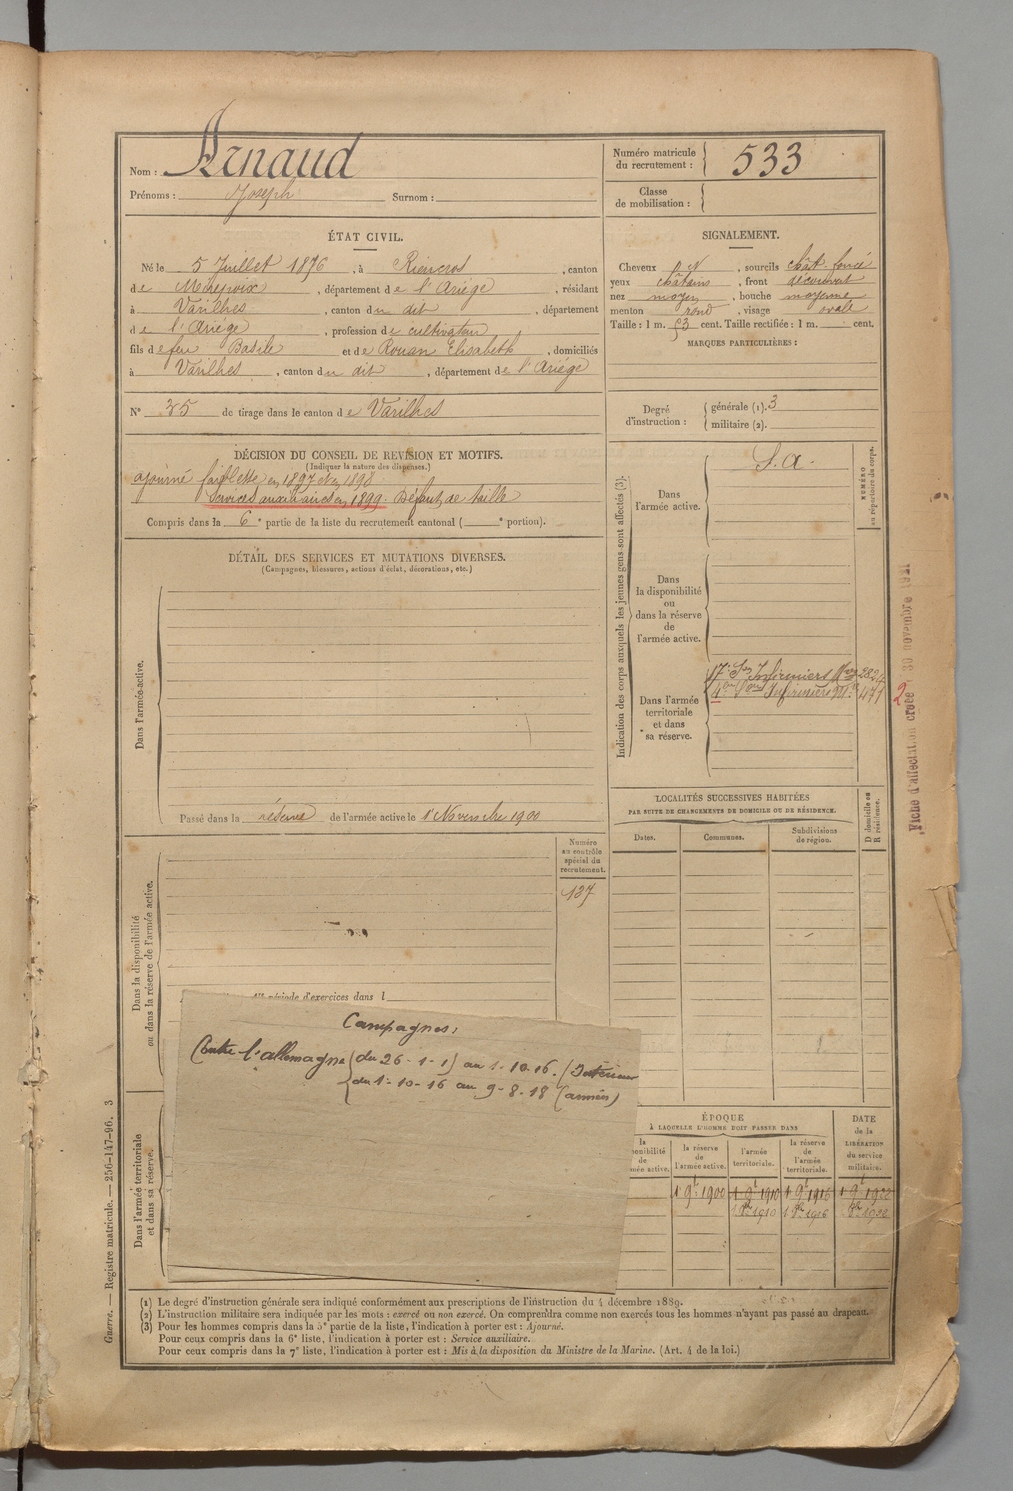 Nom : Arnaud
Prénoms : Joseph Surnom :
Numéro matricule du recrutement : 533
Classe de mobilisation :
ÉTAT CIVIL.
Né le 5 Juillet 1876, à Rieucros, canton
de Mirepoix, département de l'Ariège, résidant
à Varilhes, canton du dit, département
de l'Ariège, profession de cultivateur
fils de feu Basile et de Rouan Elisabeth, domiciliés
à Varilhes, canton du dit, département de l'Ariège
SIGNALEMENT.
Cheveux N, sourcils chât. foncé
yeux châtains, front découvert
nez moyen, bouche moyenne
menton rond, visage ovale
Taille : 1 m. 53 cent. Taille rectifiée : 1 m. cent.
MARQUES PARTICULIÈRES :
N° 35 de tirage dans le canton de Varilhes
Degré d'instruction : générale (1). 3
militaire (2).
DÉCISION DU CONSEIL DE RÉVISION ET MOTIFS.
(Indiquer la nature des dispenses.)
ajourné faiblesse en 1897 et en 1898
Services auxiliaires en 1899. Défaut de taille
Compris dans la 6e partie de la liste du recrutement cantonal ( e portion).
DÉTAIL DES SERVICES ET MUTATIONS DIVERSES.
(Campagnes, blessures, actions d'éclat, décorations, etc.)
Dans l'armée active.
Passé dans la réserve de l'armée active le 1er Novembre 1900
Indication des corps auxquels les jeunes gens sont affectés (3).
Dans l'armée active.
S. A.
NUMÉRO au répertoire du corps.
Dans la disponibilité ou dans la réserve de l'armée active.
Dans l'armée territoriale et dans sa réserve.
17e Son Infirmiers 2824
Infirmiers 471
2
Fiche d'affectation créée 30 novembre 1921
Dans la disponibilité ou dans la réserve de l'armée active.
Numéro au contrôle spécial du recrutement.
137
période d'exercices dans l
LOCALITÉS SUCCESSIVES HABITÉES
PAR SUITE DE CHANGEMENTS DE DOMICILE OU DE RÉSIDENCE.
Dates. Communes. Subdivisions de région. D domicile ou R résidence.
Campagnes :
Contre l'allemagne (du 26-1-15 au 1-10-16. (Intérieur
du 1-10-16 au 9-8-18 (armées)
Dans l'armée territoriale et dans sa réserve.
ÉPOQUE
À LAQUELLE L'HOMME DOIT PASSER DANS
DATE de la LIBÉRATION du service militaire.
la réserve de l'armée active. l'armée territoriale. la réserve de l'armée territoriale.
1 9t 1900 1 9t 1910 1 9t 1916 1 9t 1922
1 8bre 1910 1 8bre 1916 8bre 1922
(1) Le degré d'instruction générale sera indiqué conformément aux prescriptions de l'instruction du 4 décembre 1889.
(2) L'instruction militaire sera indiquée par les mots : exercé ou non exercé. On comprendra comme non exercés tous les hommes n'ayant pas passé au drapeau.
(3) Pour les hommes compris dans la 5e partie de la liste, l'indication à porter est : Ajourné.
Pour ceux compris dans la 6e liste, l'indication à porter est : Service auxiliaire.
Pour ceux compris dans la 7e liste, l'indication à porter est : Mis à la disposition du Ministre de la Marine. (Art. 4 de la loi.)
Guerre. — Registre matricule. — 256-147-96. 3